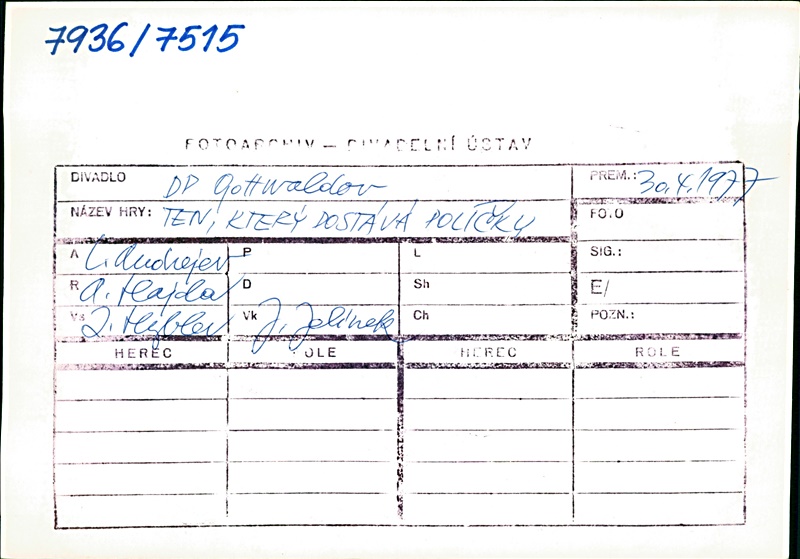 7936/7515
FOTOARCHIV – DIVADELNÍ ÚSTAV
DIVADLO DP Gottwaldov PREM.: 30.4.1977
NÁZEV HRY: TEN, KTERÝ DOSTÁVÁ POLÍČKY FOTO
A L. Andrejev P L SIG.:
R A. Hajda D Sh E/
Vs Z. Hybler Vk J. Jelínek Ch POZN.:
HEREC ROLE HEREC ROLE